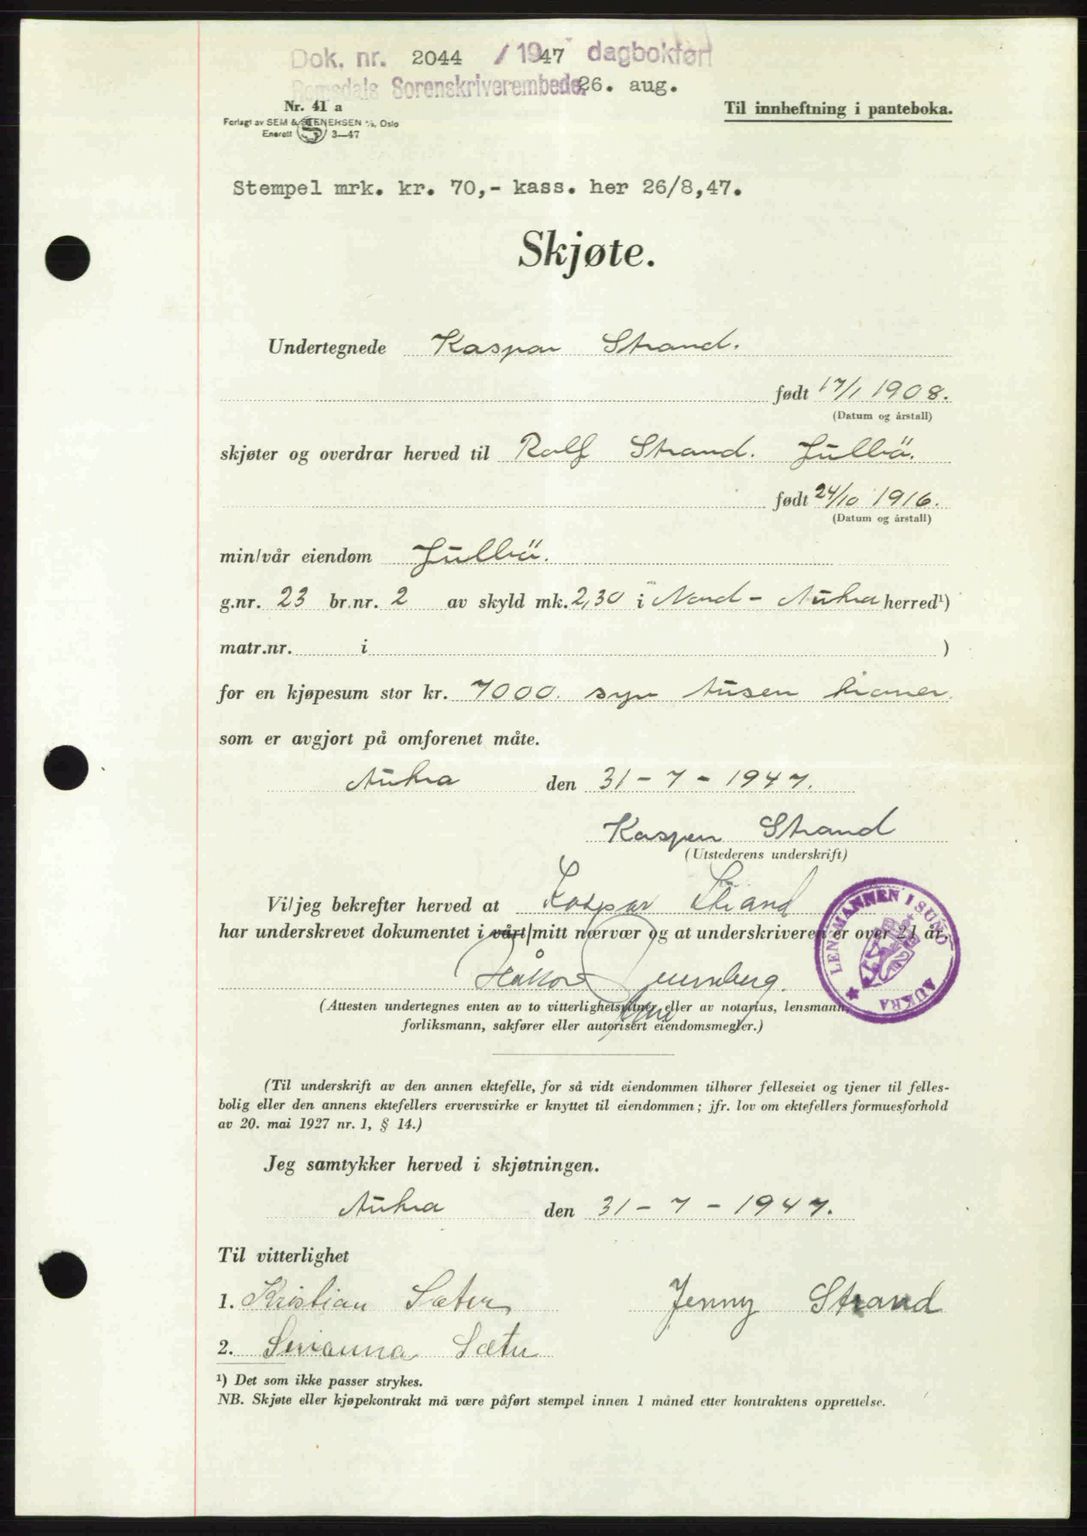 Dok. nr. 2044 / 1947 dagbokført
Romsdals Sorenskriverembede. 26. aug.
Nr. 41 a
Til innheftning i panteboka.
Forlagt av SEM & STENERSEN A/S, Oslo
Enerett S 3—47
Stempel mrk. kr. 70,- kass. her 26/8,47.
Skjøte.
Undertegnede Kaspar Strand.
født 17/1 1908.
(Datum og årstall)
skjøter og overdrar herved til Rolf Strand. Julbö.
født 24/10 1916.
(Datum og årstall)
min/vår eiendom Julbö.
g.nr. 23 br.nr. 2 av skyld mk. 2,30 i Nord - Aukra herred¹)
matr.nr. i )
for en kjøpesum stor kr. 7000. syv tusen kroner.
som er avgjort på omforenet måte.
Aukra den 31 - 7 - 1947.
Kaspar Strand
(Utstederens underskrift)
Vi/jeg bekrefter herved at Kaspar Strand
har underskrevet dokumentet i vårt/mitt nærvær og at underskriveren er over 21 år.
Håkon
(Attesten undertegnes enten av to vitterlighetsvitner eller av notarius, lensmann,
forliksmann, sakfører eller autorisert eiendomsmegler.)
LENSMANNEN I SUND AUKRA
(Til underskrift av den annen ektefelle, for så vidt eiendommen tilhører felleseiet og tjener til felles-
bolig eller den annens ektefellers ervervsvirke er knyttet til eiendommen; jfr. lov om ektefellers formuesforhold
av 20. mai 1927 nr. 1, § 14.)
Jeg samtykker herved i skjøtningen.
Aukra den 31 - 7 - 1947.
Til vitterlighet
1. Kristian Sæter Jenny Strand
2. Sæter
¹) Det som ikke passer strykes.
NB. Skjøte eller kjøpekontrakt må være påført stempel innen 1 måned etter kontraktens opprettelse.